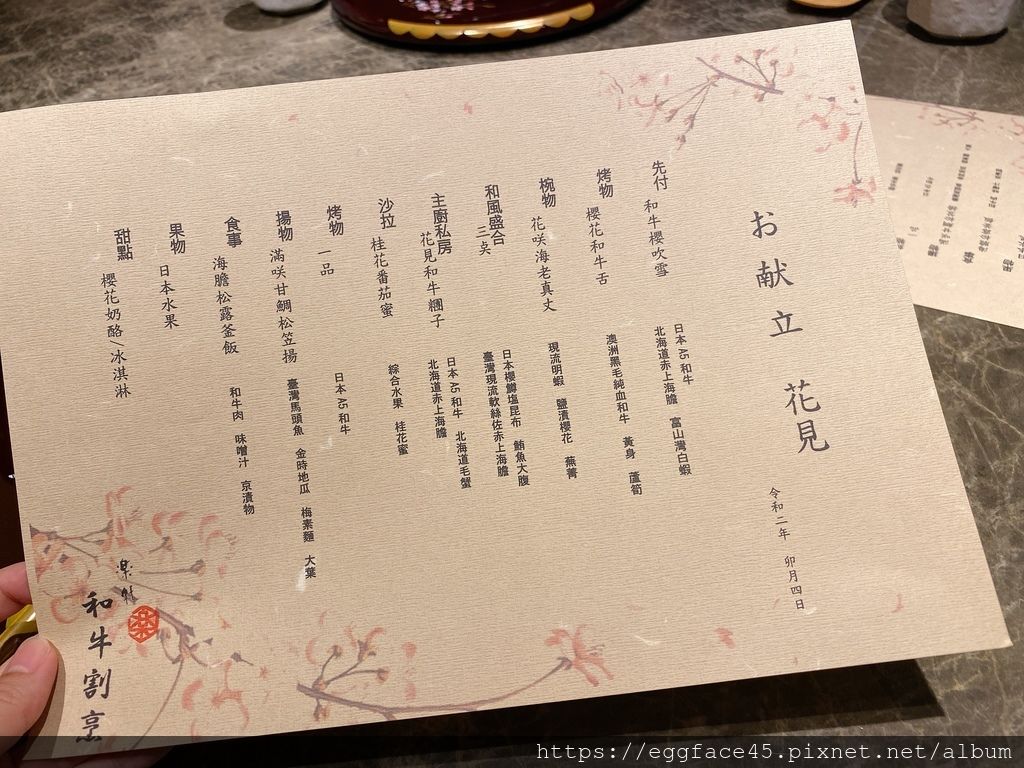 お献立　花見
令和二年　卯月四日
先付　和牛櫻吹雪
日本A5和牛
北海道赤上海膽　富山灣白蝦
烤物　櫻花和牛舌
澳洲黑毛純血和牛　黃身　蘆筍
椀物　花咲海老真丈
現流明蝦　鹽漬櫻花　蕪菁
和風盛合　三貞
日本櫻鱒塩昆布　鮪魚大腹
臺灣現流軟絲佐赤上海膽
主廚私房　花見和牛糰子
日本A5和牛　北海道毛蟹
北海道赤上海膽
沙拉　桂花番茄蜜
綜合水果　桂花蜜
烤物　一品
日本A5和牛
揚物　滿咲甘鯛松笠揚
臺灣馬頭魚　金時地瓜　梅素麵　大葉
食事　海膽松露釜飯
和牛肉　味噌汁　京漬物
果物　日本水果
甜點　櫻花奶酪/冰淇淋
和牛割烹
https://eggface45.pixnet.net/album